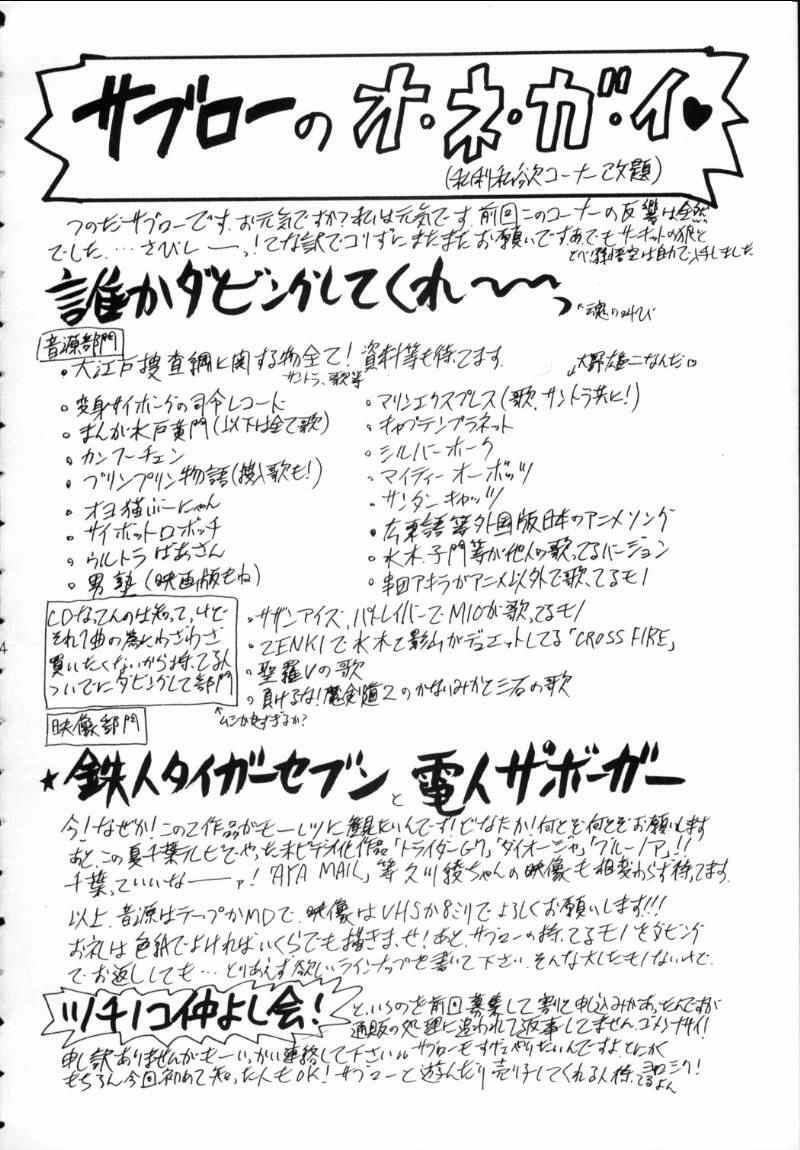 サブローの オ・ネ・ガ・イ♥
(私利私欲コーナー改題)
つのだサブローです。お元気ですか?私は元気です。前回このコーナーの反響は全然
でした…。さびしーーっ!てな訳でコリずにまたまたお願いです。あ、でもサーキットの狼と
とべ!孫悟空は自力で入手しました。
誰かダビングしてくれ〜〜〜っ
↖魂の叫び
音源部門
・大江戸捜査網に関する物全て!資料等も待ってます。
サントラ、歌等
↓大野雄二なんだ♡
・変身サイボーグの司令レコード
・まんが水戸黄門(以下は全て歌)
・カンフーチェン
・プリンプリン物語(挿入歌も!)
・オヨ猫ぶーにゃん
・サイボットロボッチ
・ウルトラばあさん
・男塾(映画版もね)
・マリンエクスプレス(歌、サントラ共に!)
・キャプテンプラネット
・シルバーホーク
・マイティーオーボッツ
・サンダーキャッツ
・広東語等外国版日本のアニメソング
・水木、子門等が他人の歌ってるバージョン
・串田アキラがアニメ以外で歌ってるモノ
CDなってんのは知ってっけど
それ1曲の為にわざわざ
買いたくないから持ってる人
ついでにダビングして部門
↖ムシが良すぎるか?
・サザンアイズ、パトレイバーでMIOが歌ってるモノ
・ZENKIで水木と影山がデュエットしてる「CROSS FIRE」
・聖羅Vの歌
・負けるな!魔剣道2のかないみかと三石の歌
映像部門
★鉄人タイガーセブンと電人ザボーガー
今!なぜか!この2作品がモーレツに観たいんです!どなたか!何とぞ何とぞお願いします
あと、この夏千葉テレビでやった未ビデオ化作品「トライダーG7」「ダイオージャ」「クルーノア」!!
千葉っていいなーーァ!「AYA MAIL」等久川綾ちゃんの映像も相変わらず待ってます。
以上、音源はテープかMDで、映像はVHSか8ミリでよろしくお願いします!!!
お礼は色紙でよければいくらでも描きまっせ!あと、サブローの持ってるモノをダビング
でお返ししても…とりあえず欲しいラインナップを書いて下さい。そんな大したモノないけど。
ツチノコ仲よし会!
というのを前回募集して割と申し込みがあったんですが
通販の処理に追われて返事してません。ゴメンナサイ!
申し訳ありませんがもーいっかい連絡して下さい。サブローもすげェやりたいんですよ、とにかく
もちろん今回初めて知った人もOK!サブローと遊んだり売り子してくれる人待ってるよん
ヨロシク!
4